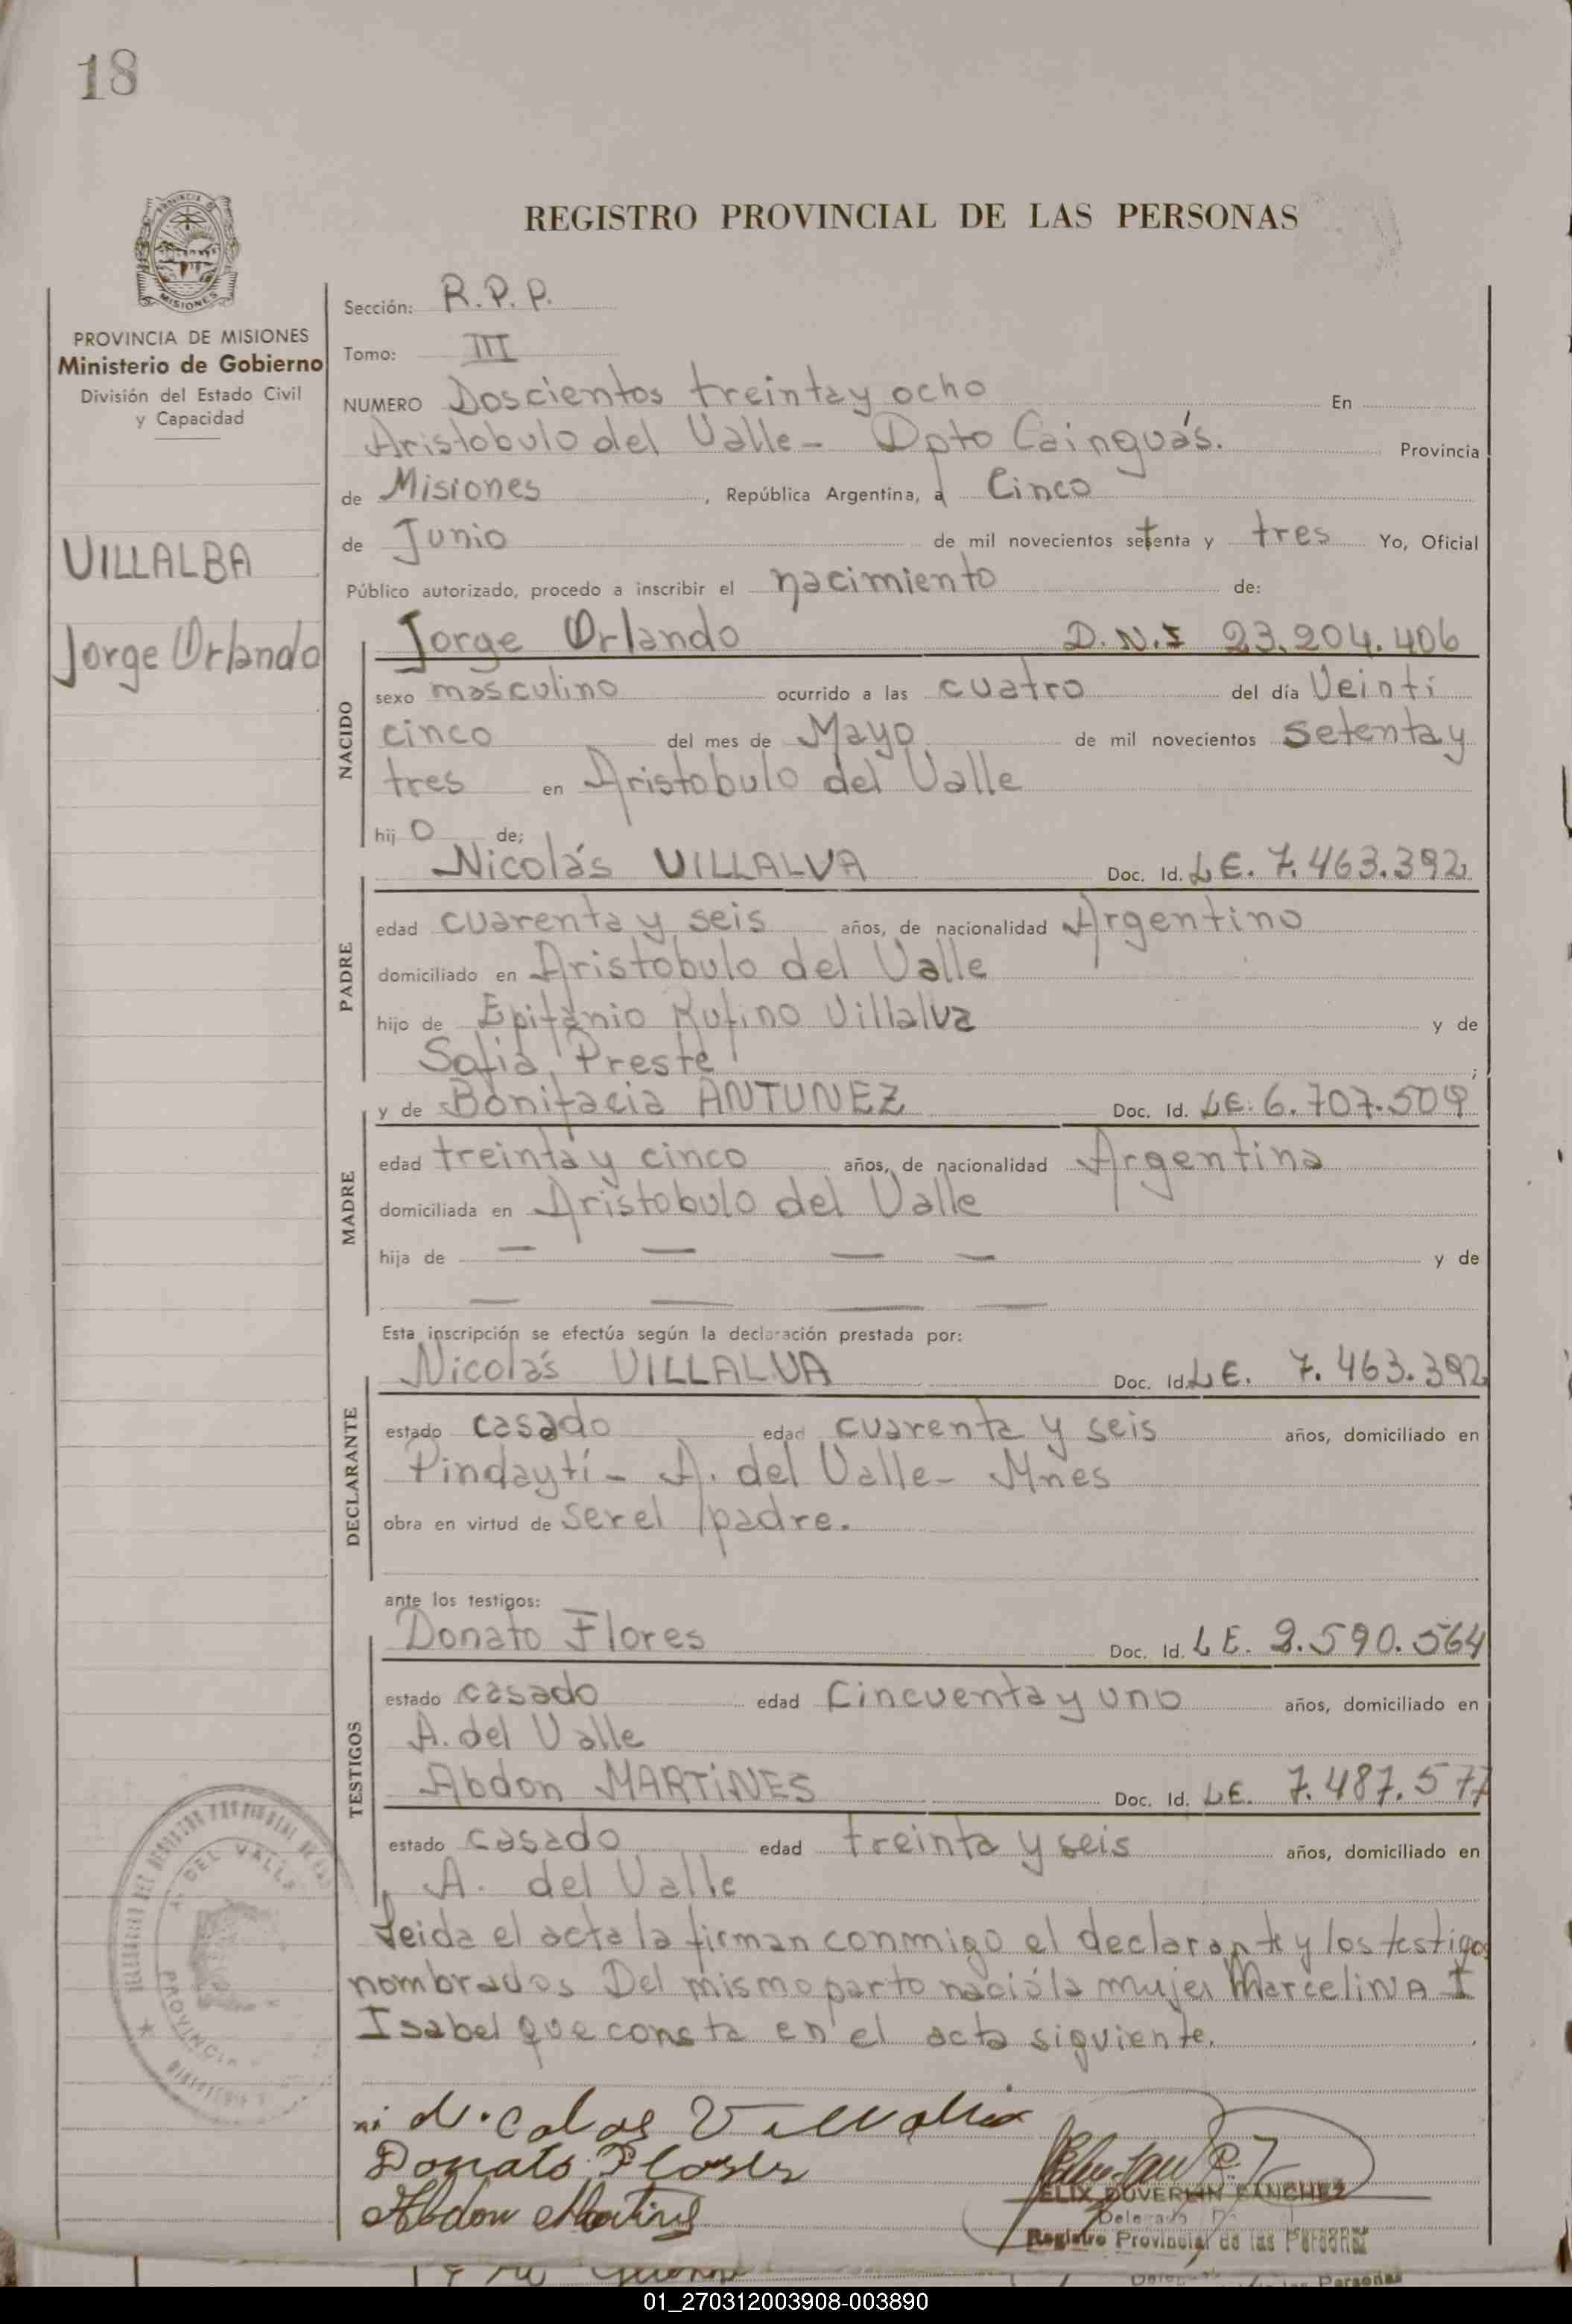 18
REGISTRO PROVINCIAL DE LAS PERSONAS
PROVINCIA DE MISIONES
Ministerio de Gobierno
División del Estado Civil
y Capacidad
VILLALBA
Jorge Orlando
Sección: R.P.P.
Tomo: III
NUMERO Doscientos treinta y ocho En
Aristobulo del Valle - Dpto Cainguás. Provincia
de Misiones, República Argentina, a Cinco
de Junio de mil novecientos setenta y tres Yo, Oficial
Público autorizado, procedo a inscribir el nacimiento de:
NACIDO
Jorge Orlando D.N.I 23.204.406
sexo masculino ocurrido a las cuatro del día Veinti
cinco del mes de Mayo de mil novecientos setenta y
tres en Aristobulo del Valle
hijo de;
PADRE
Nicolás VILLALVA Doc. Id. LE. 7.463.392
edad cuarenta y seis años, de nacionalidad Argentino
domiciliado en Aristobulo del Valle
hijo de Epifanio Rufino Villalva y de
Sofia Preste;
MADRE
y de Bonifacia ANTUNEZ Doc. Id. LE. 6.707.509
edad treinta y cinco años, de nacionalidad Argentina
domiciliada en Aristobulo del Valle
hija de — — — — y de
— — — —
Esta inscripción se efectúa según la declaración prestada por:
DECLARANTE
Nicolás VILLALVA Doc. Id. LE. 7.463.392
estado casado edad cuarenta y seis años, domiciliado en
Pindaytí - A. del Valle - Mnes
obra en virtud de ser el padre.
ante los testigos:
TESTIGOS
Donato Flores Doc. Id. LE. 2.590.564
estado casado edad Cincuenta y uno años, domiciliado en
A. del Valle
Abdon MARTiNES Doc. Id. LE. 7.487.577
estado casado edad treinta y seis años, domiciliado en
A. del Valle
Leida el acta la firman conmigo el declarante y los testigos
nombrados Del mismo parto nació la mujer MarcelinA I
Isabel que consta en el acta siguiente.
Donato Flores
Abdon Martines
FELIX DUVERLIN SANCHEZ
Registro Provincial de las Personas
A. DEL VALLE
PROVINCIA
01_270312003908-003890